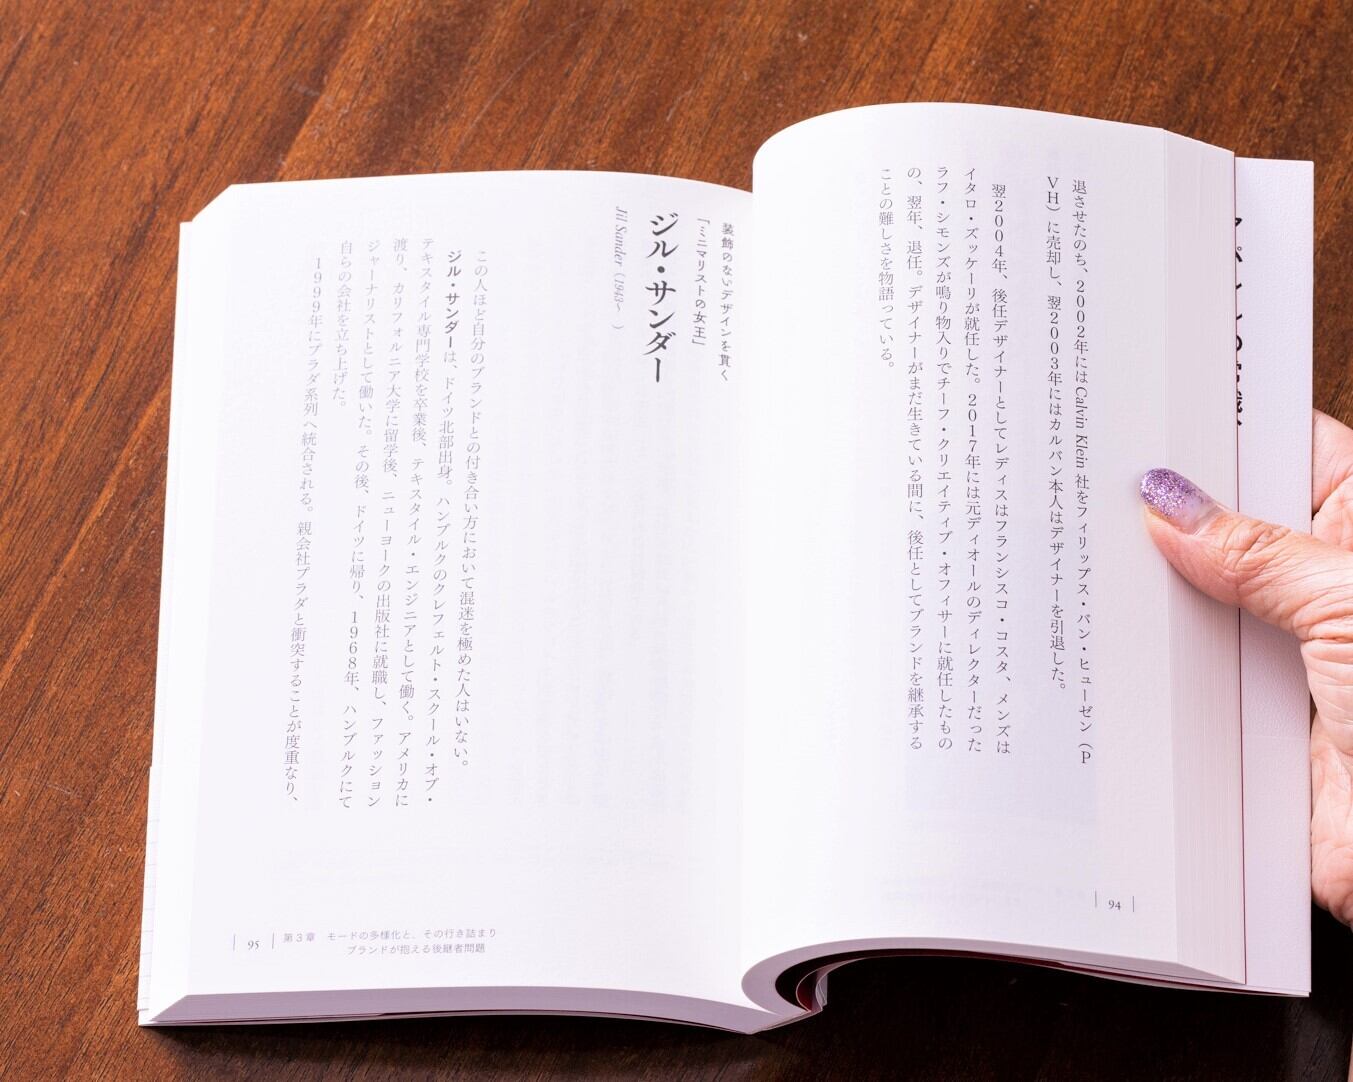 退させたのち、2002年にはCalvin Klein 社をフィリップス・バン・ヒューゼン（P
VH）に売却し、翌2003年にはカルバン本人はデザイナーを引退した。
翌2004年、後任デザイナーとしてレディスはフランシスコ・コスタ、メンズは
イタロ・ズッケーリが就任した。2017年には元ディオールのディレクターだった
ラフ・シモンズが鳴り物入りでチーフ・クリエイティブ・オフィサーに就任したもの
の、翌年、退任。デザイナーがまだ生きている間に、後任としてブランドを継承する
ことの難しさを物語っている。
94
装飾のないデザインを貫く
「ミニマリストの女王」
ジル・サンダー
Jil Sander（1943〜　）
この人ほど自分のブランドとの付き合い方において混迷を極めた人はいない。
ジル・サンダーは、ドイツ北部出身。ハンブルクのクレフェルト・スクール・オブ・
テキスタイル専門学校を卒業後、テキスタイル・エンジニアとして働く。アメリカに
渡り、カリフォルニア大学に留学後、ニューヨークの出版社に就職し、ファッション
ジャーナリストとして働いた。その後、ドイツに帰り、1968年、ハンブルクにて
自らの会社を立ち上げた。
1999年にプラダ系列へ統合される。親会社プラダと衝突することが度重なり、
95
第3章　モードの多様化と、その行き詰まり
ブランドが抱える後継者問題